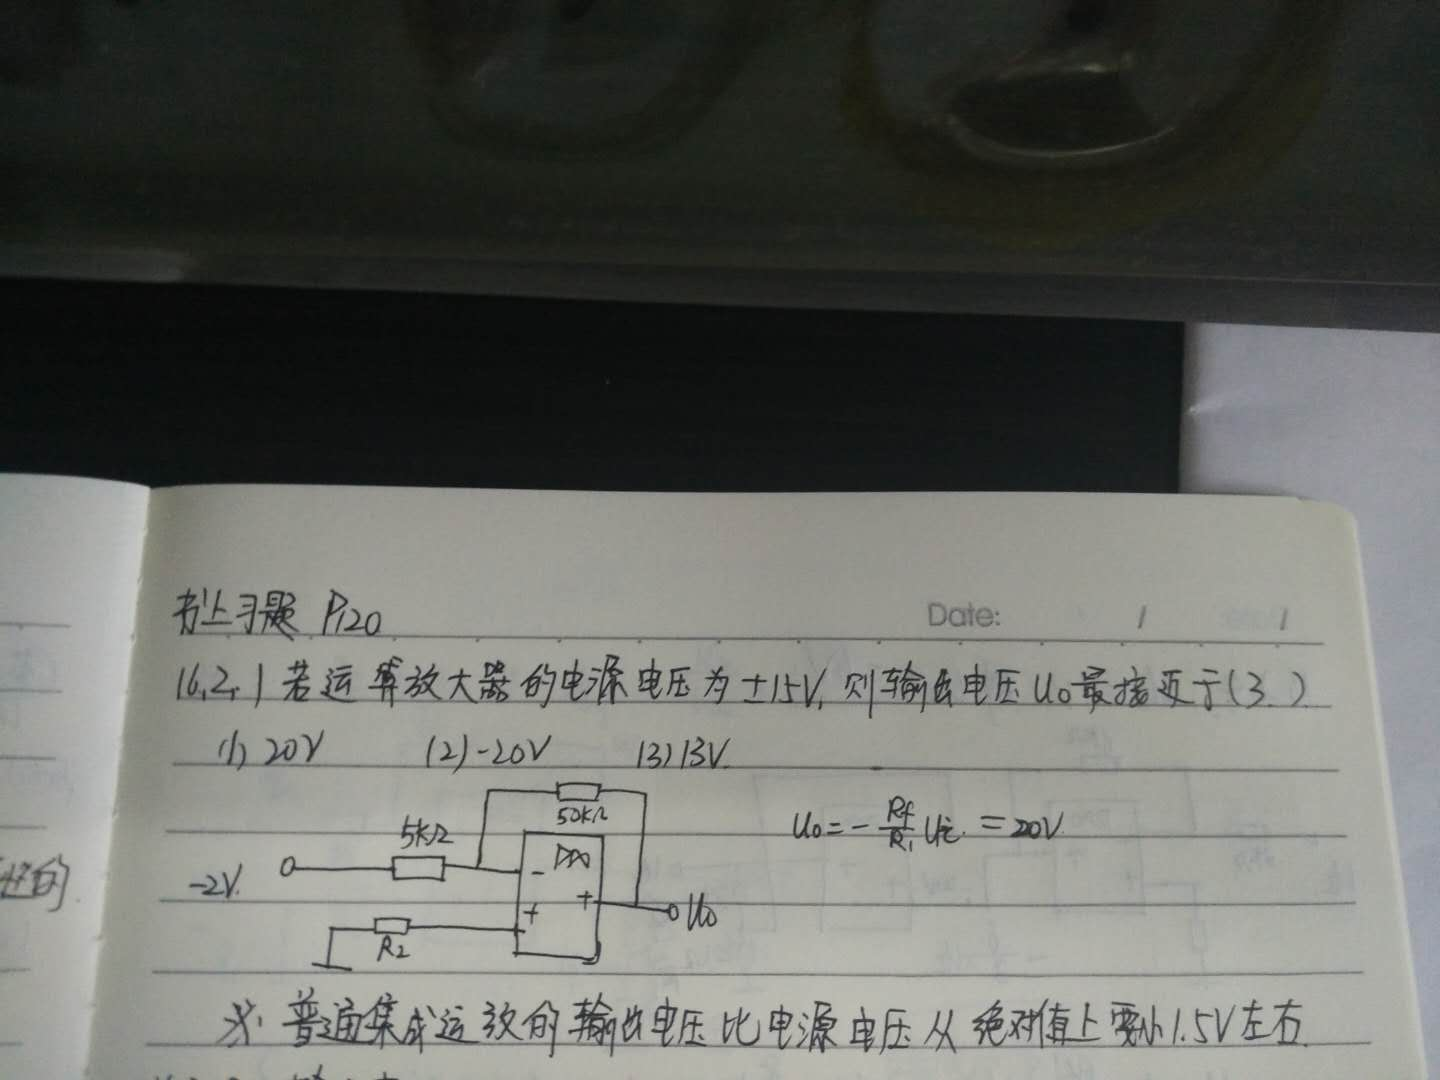 书上习题 P120
Date: / /
16.2.1 若运算放大器的电源电压为±15V,则输出电压U0最接近于(3.)
(1) 20V (2)-20V (3)13V.
50KΩ
5KΩ
U0=-Rf/R1 Ui=20V
-
-2V.
+ +
U0
R2
的
※ 普通集成运放的输出电压比电源电压从绝对值上要小1.5V左右.